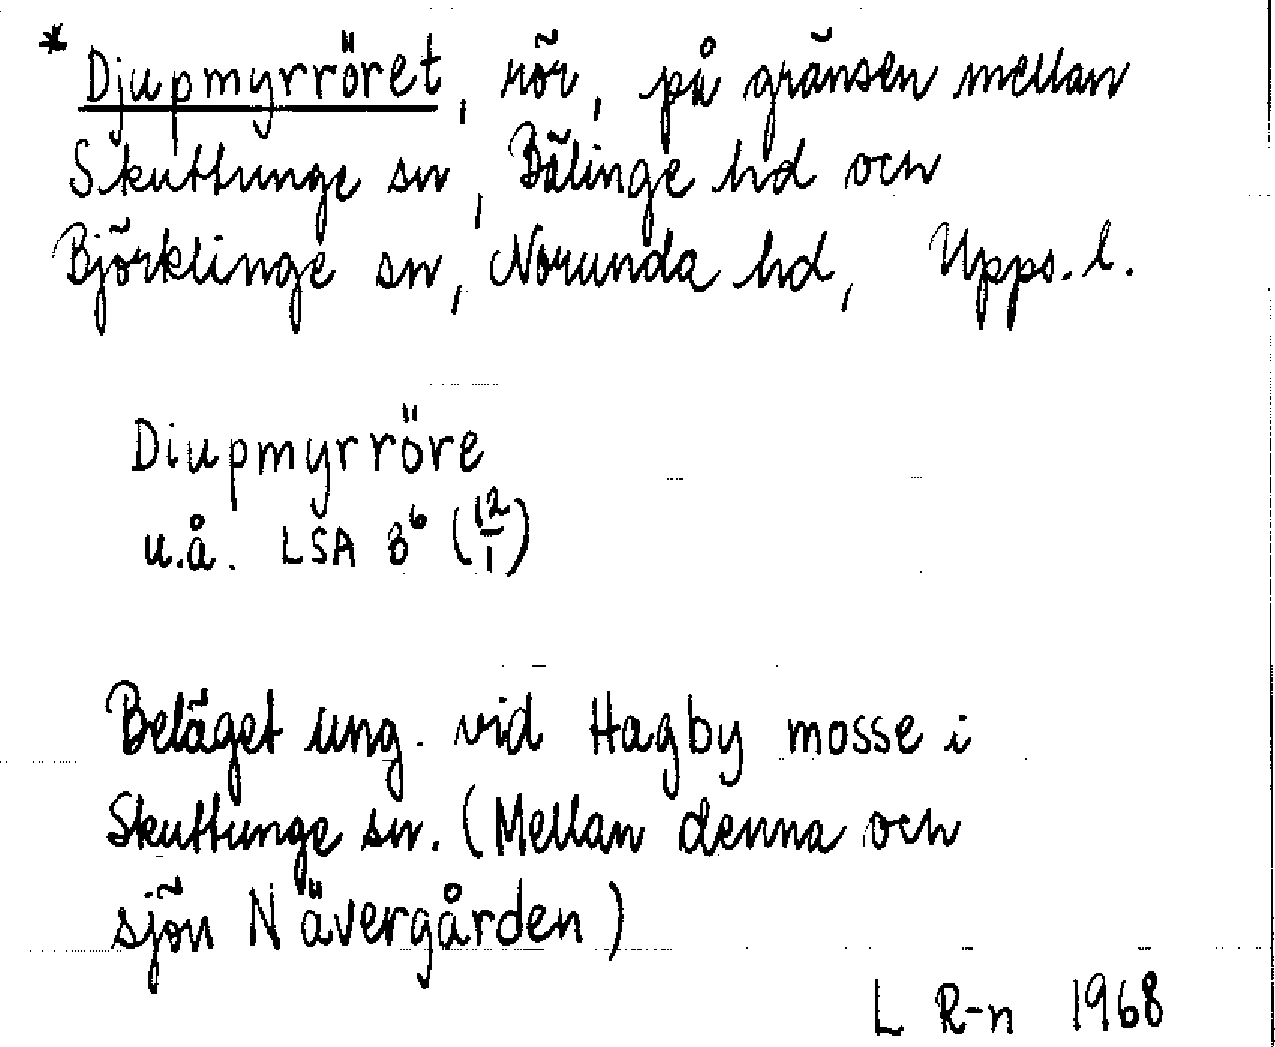 * Djupmyrröret, rör, på gränsen mellan
Skuttunge sn, Bälinge hd och
Björklinge sn, Norunda hd, Upps. l.
Diupmyrröre
u.å. LSA 8⁶ (12/1)
Beläget ung. vid Hagby mosse i
Skuttunge sn. (Mellan denna och
sjön Nävergården)
L R-n 1968